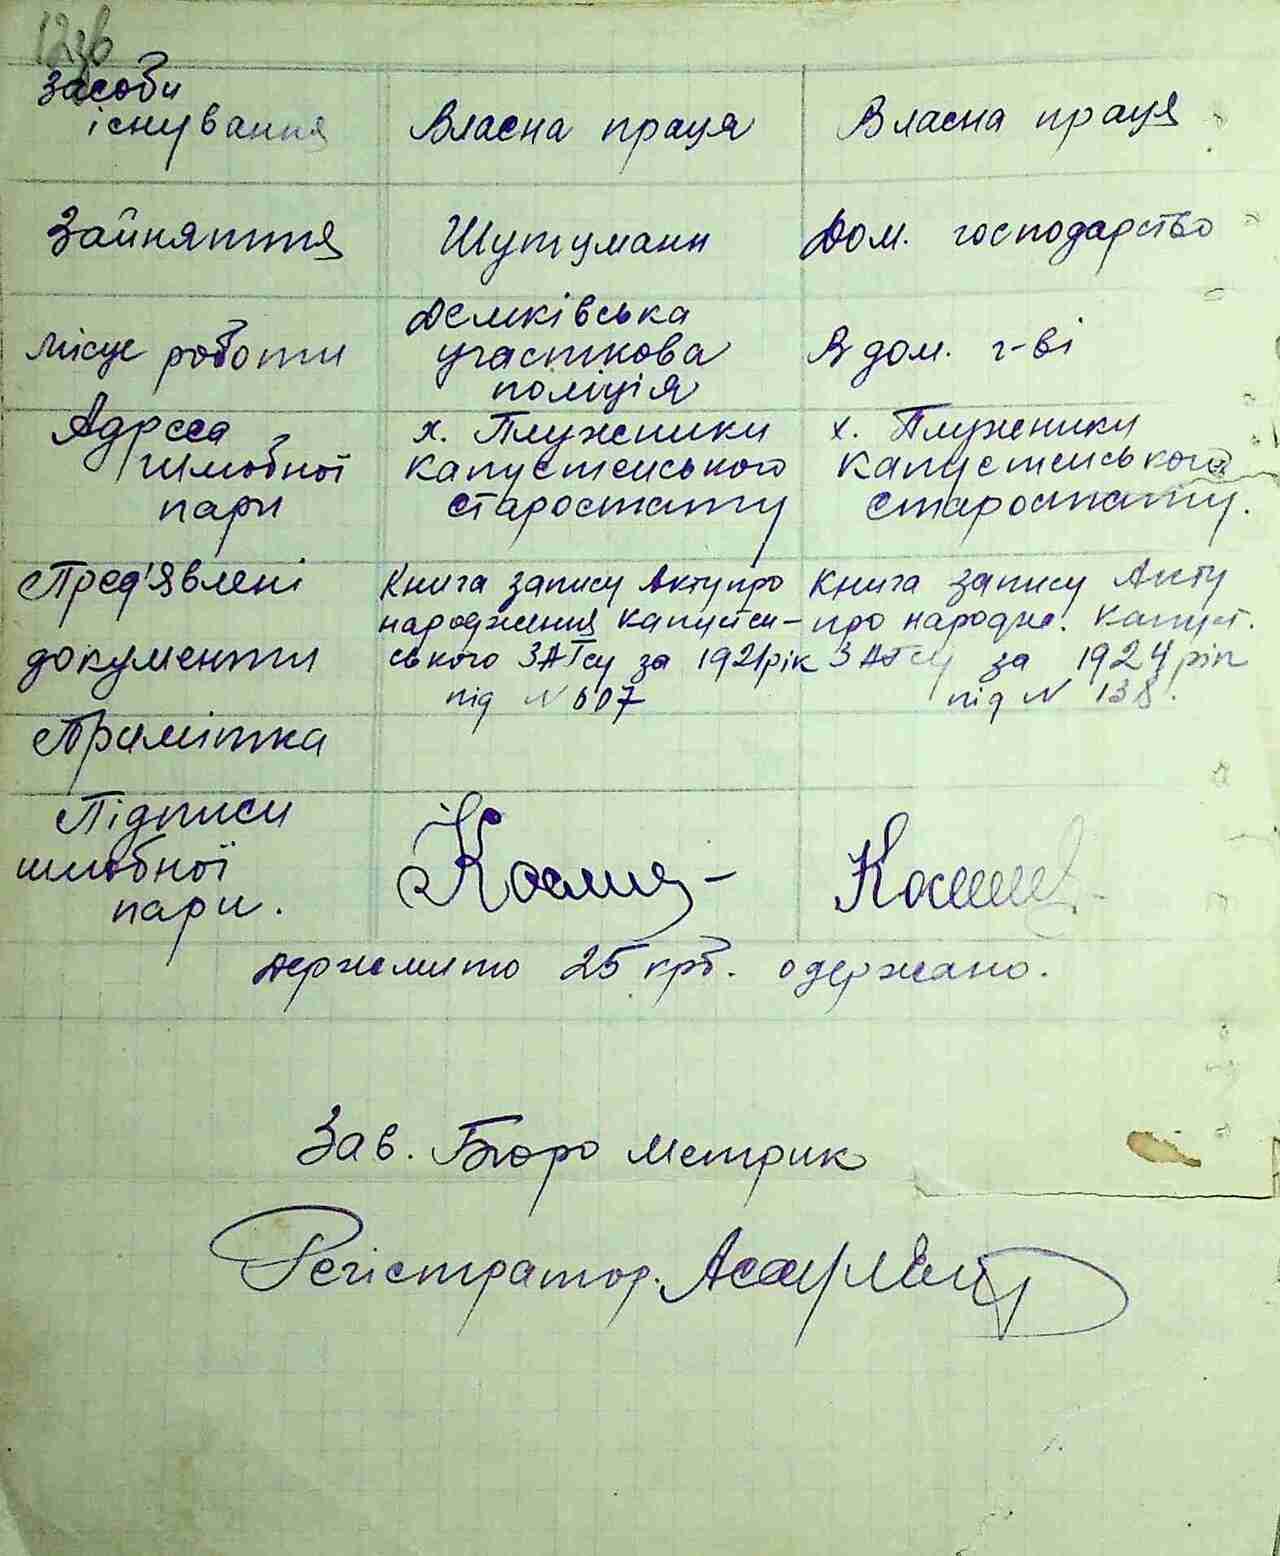 12зв
Засоби існування
Власна праця
Власна праця
Зайняття
Шутуманн
Дом. господарство
Місце роботи
Демківська
участкова
поліція
В дом. г-ві
Адреса
шлюбної
пари
х. Плужники
капустенського
старостату
х. Плужники
капустенського
старостату.
Пред'явлені
документи
Книга запису Акту про
народження капустен-
ського ЗАГсу за 1921 рік
під № 607
Книга запису Акту
про народже. капуст.
ЗАГсу за 1924 рік
під № 138.
Примітка
Підписи
шлюбної
пари.
держмито 25 крб. одержано.
Зав. Бюро метрик
Регістратор.